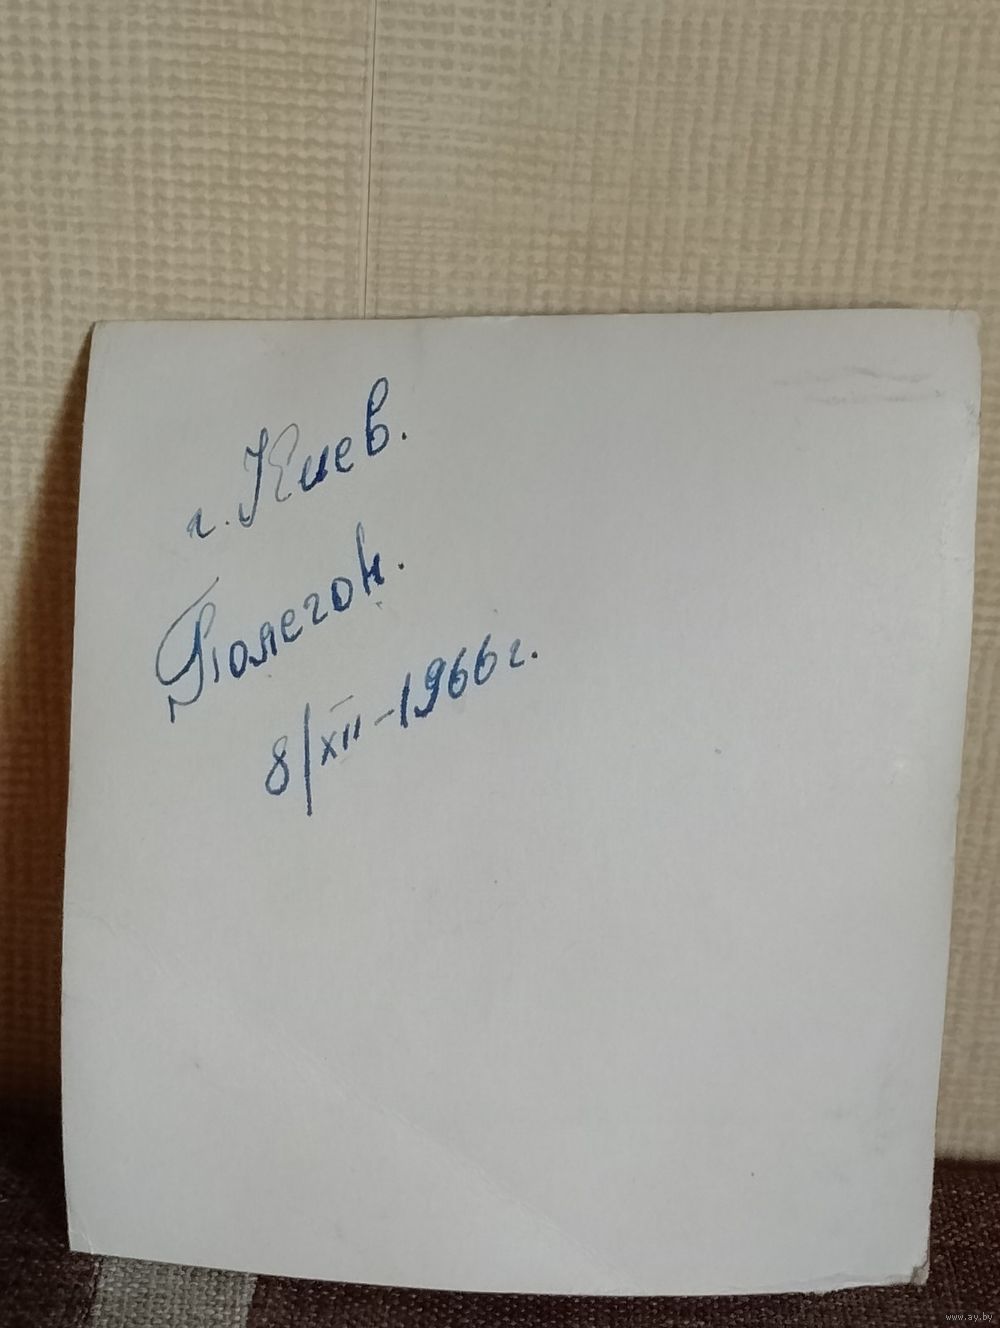 г. Киев.
Полегон.
8/XII-1966г.
www.ay.by